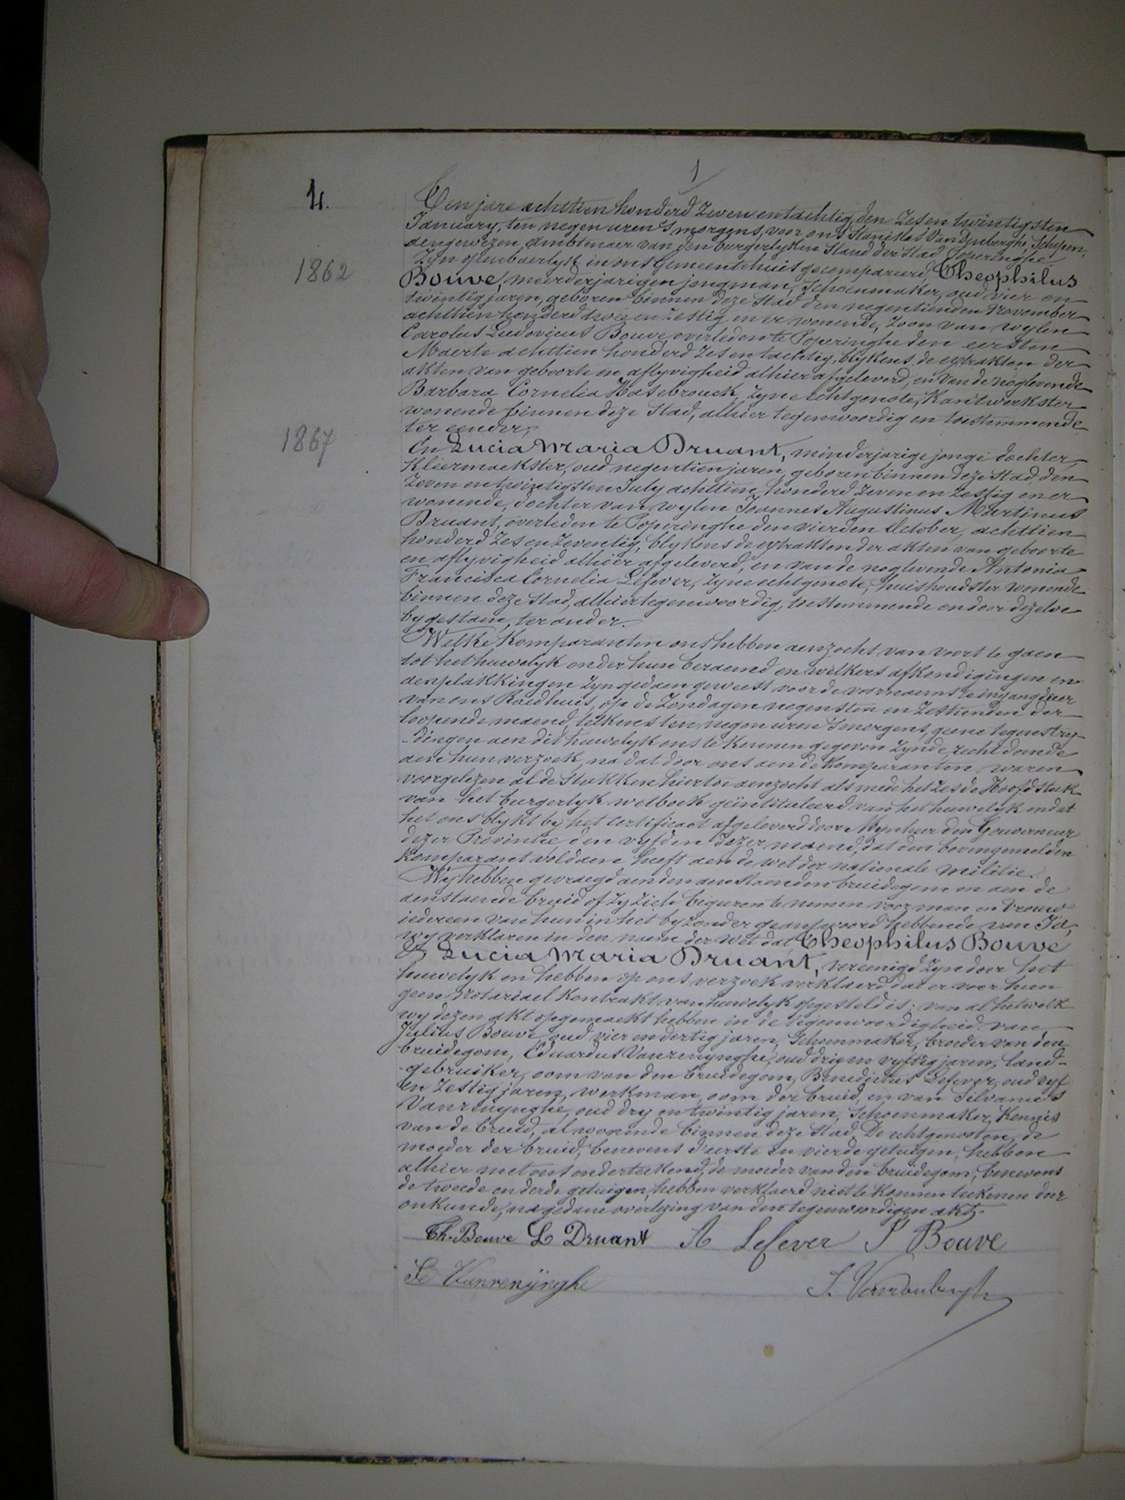 1
4.
Ten jare achttien honderd zeven en tachtig, den zes en twintigsten
January, ten negen uren 's morgens, voor ons Stanislas Vandenberghe Schepen,
aengewezen, Ambtenaer van den burgerlyken Stand der Stad Poperinghe
Zyn openbaerlyk in ons gemeentehuis gecompareerd, Theophilus
1862
Bouve, meerderjarigen jongman, Schoenmaker, oud vier en
twintig jaren, geboren binnen deze stad den negentienden November
achttien honderd twee en zestig en er wonende, zoon van wylen
Carolus Ludovicus Bouve, overleden te Poperinghe den eersten
Maerte achttien honderd zes en tachtig, blykens de extrakten der
akten van geboorte en aflyvigheid alhier afgeleverd, en van de nóglevende
Barbara Cornelia Hasebrouck, zyne echtgenote, Kantwerkster
wonende binnen deze Stad, alhier tegenwoordig en toestemmende
ter eender;
1867
En Lucia Maria Druant, minderjarige jonge dochter
Kleermaekster, oud negentien jaren, geboren binnen deze stad, den
Zeven en twintigsten July achttien honderd zeven en zestig en er
wonende, dochter van wylen Joannes Augustinus Martinus
Druant, overleden te Poperinghe den vierden October, achttien
honderd zes en zeventig, blykens de extrakten der akten van geboorte
en aflyvigheid alhier afgeleverd, en van de noglevende Antonia
Francisca Cornelia Lefever, zyne echtgenote, huishoudster wonende
binnen deze stad, alhier tegenwoordig, toestemmende en door dezelve
bygestaen, ter ander.
Welke Komparanten ons hebben aenzocht van voort te gaen
tot het huwelyk onder hun beraemd en wilkers afkondigingen en
aenplakkingen zyn gedaen geweest voor de voornaemste ingangdeur
van ons Raedhuis, op de Zondagen negensten en Zestienden der
loopende maend, telkens ten negen uren 's morgens, geene tegenstry-
-dingen aen dit huwelyk ons te kennen gegeven zynde, recht doende
aen hun verzoek, na dat door ons aen de Komparanten waren
voorgelezen al de Stukken hiertoe aenzocht als mede het zesde Hoofdstuk
van het burgerlyk wetboek geintituleerd van het huwelyk en dat
het ons blykt by het certificaet afgeleverd door Mynheer den Gouverneur
dezer Provintie den vyfden dezer maend, dat den bovengemelden
Komparant voldaen heeft aen de wet der nationale Militie.
Wy hebben gevraegd aen den aenstaenden bruidegom en aen de
aenstaende bruid of zy zich begeeren te nemen voor man en vrouw
iedereen van hun in het byzonder geantwoord hebbende van Ja,
wy verklaren in den naem der wet dat Theophilus Bouve
& Lucia Maria Druant, vereenigd zyn door het
huwelyk en hebben op ons verzoek verklaerd dat er voor hun
geen Notariael Kontrakt van huwelyk opgesteld is; van al hetwelk
wy dezen akt opgemaekt hebben in de tegenwoordigheid van
Julius Bouve, oud vier en dertig jaren, Schoenmaker, broeder van den
bruidegom, Eduardus Vanrenynghe, oud dry en vyftig jaren, land-
-gebruiker, oom van den bruidegom, Benedictus Lefever, oud vyf
en Zestig jaren, werkman, oom der bruid, en van Silvanus
Vanrenynghe, oud dry en twintig jaren, Schoenmaker, Kennis
van de bruid, al wonende binnen deze stad. De echtgenoten, de
moeder der bruid, benevens d'eerste en vierde getuigen, hebben
alhier met ons onderteekend, de moeder van den bruidegom, benevens
de tweede en derde getuigen, hebben verklaerd niet te konnen teekenen door
onkunde, na gedane overlezing van den tegenwoordigen akt.
Th. Bouve L Druant A Lefever J Bouve
Se Vanrenÿnghe S. Vandenberghe